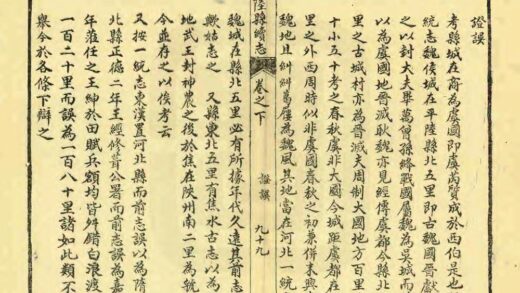 證誤
考縣城在商為虞國即虞芮質成於西伯是也
統志魏侯城在平陸縣北五里即古魏國晉獻
之以封大夫畢萬傳孫絳戰國屬魏為吳城而
以為虞國地晉滅耿魏亦見經傳虞都今縣北
里之古城村亦為晉滅周制大國地方百里
十小五十考之春秋虞非大國今城距虞都在
里之外西周時似非虞國春秋之初兼併未興
魏地且糾糾葛屨為魏風其地當在河北一統
陸縣續志 卷之下 證誤 九十九
魏城在縣北五里必有所據年代久遠其前志
歟姑志之 又縣東北五里有焦水古志以為
地武王封神農之後於焦在陝州南二里為虢
今並存之以俟考云
又按一統志東漢置河北縣而前志誤以為隋
北縣正德二年王經脩葺公署而前志誤為嘉
年蒞任之王紳於田賦兵額均皆舛錯白浪渡
一百二十里而誤為一百八十里諸如此類不
舉今於各條下辯之